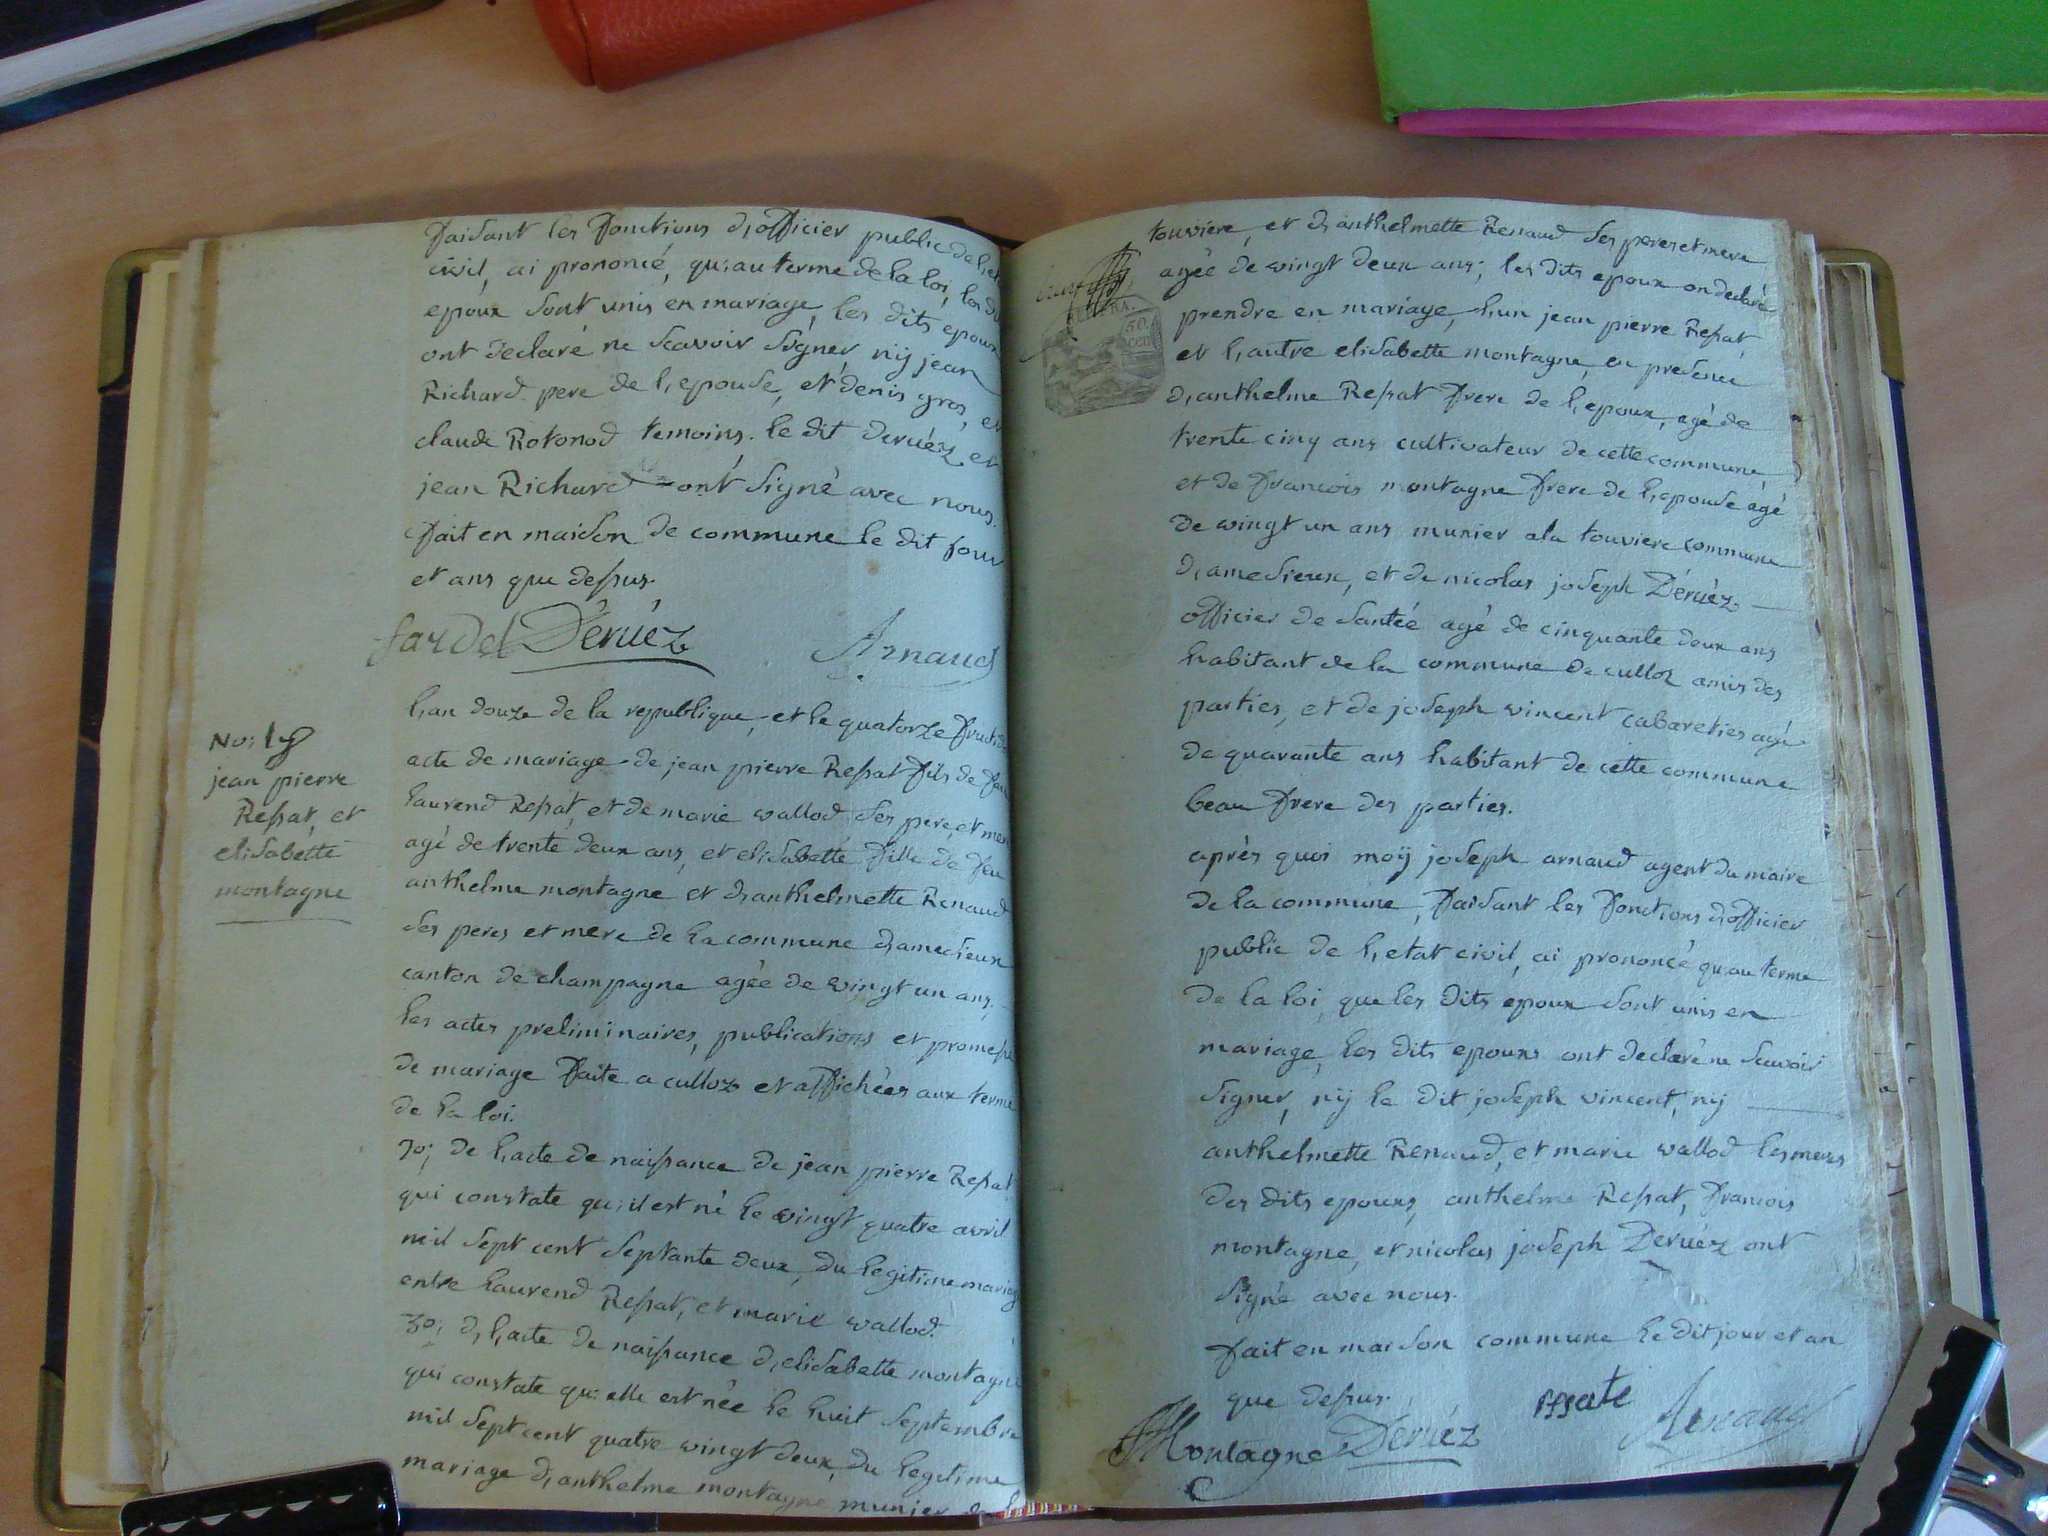 faisant les fonctions d,officier public de l,etat
civil, ai prononcé, qu,au terme de la loi, les dits
epoux sont unis en mariage, les dits epoux
ont declaré ne scavoir signer, nÿ jean
Richard pere de l,epouse, et denis gros, et
claude Rotonod temoins. le dit deruéz et
jean Richard ont signé avec nous.
fait en maison de commune le dit jour
et ans que dessus.
fardel Déruéz Arnaud
l,an douze de la republique, et le quatorze fructidor
acte de mariage de jean pierre Ressat fils de feu
laurend Ressat, et de marie wallod ses pere, et mere
agé de trente deux ans, et elisabette fille de feu
anthelme montagne et d,anthelmette Renaud
ses peres et mere de la commune d,ameÿsieux
canton de champagne agée de wingt un ans.
les actes preliminaires, publications et promesse
de mariage faite a culloz et affichées aux terme
de la loi.
jo; de l,acte de naissance de jean pierre Ressat
qui constate qu,il est né le wingt quatre avril
mil sept cent septante deux, du legitime mariage
entre laurend Ressat, et marie wallod.
2o; d,l,acte de naissance d,elisabette montagne
qui constate qu,elle est née le huit septembre
mil sept cent quatre wingt deux, du legitime
mariage d,anthelme montagne munier de la
No;
jean pierre
Ressat, et
elisabette
montagne
50.
CEN
touviere, et d,anthelmette Renaud ses peres et mere
agée de wingt deux ans; les dits epoux on declaré
prendre en mariage, l,un jean pierre Ressat,
et l,autre elisabette montagne, en presence
d,anthelme Ressat frere de l,epoux, agé de
trente cinq ans cultivateur de cette commune,
et de francois montagne frere de l,epouse agé
de wingt un ans munier a la touviere commune
d,amesieux, et de nicolas joseph Déruéz
officier de santée agé de cinquante deux ans
habitant de la commune de culloz amis des
parties, et de joseph wincent cabareties agé
de quarante ans habitant de cette commune
beau frere des parties.
après quoi moÿ joseph arnaud agent du maire
de la commune, faisant les fonctions d,officier
public de l,etat civil, ai prononcé qu,au terme
de la loi, que les dits epoux sont unis en
mariage, les dits epouxs ont declaré ne scavoir
signer, nÿ le dit joseph wincent, nÿ
anthelmette Renaud, et marie wallod les meres
des dits epouxs, anthelme Ressat, francois
montagne, et nicolas joseph Déruéz ont
signé avec nous.
fait en maison commune le dit jour et an
que dessus.
Montagne Déruéz Arnaud